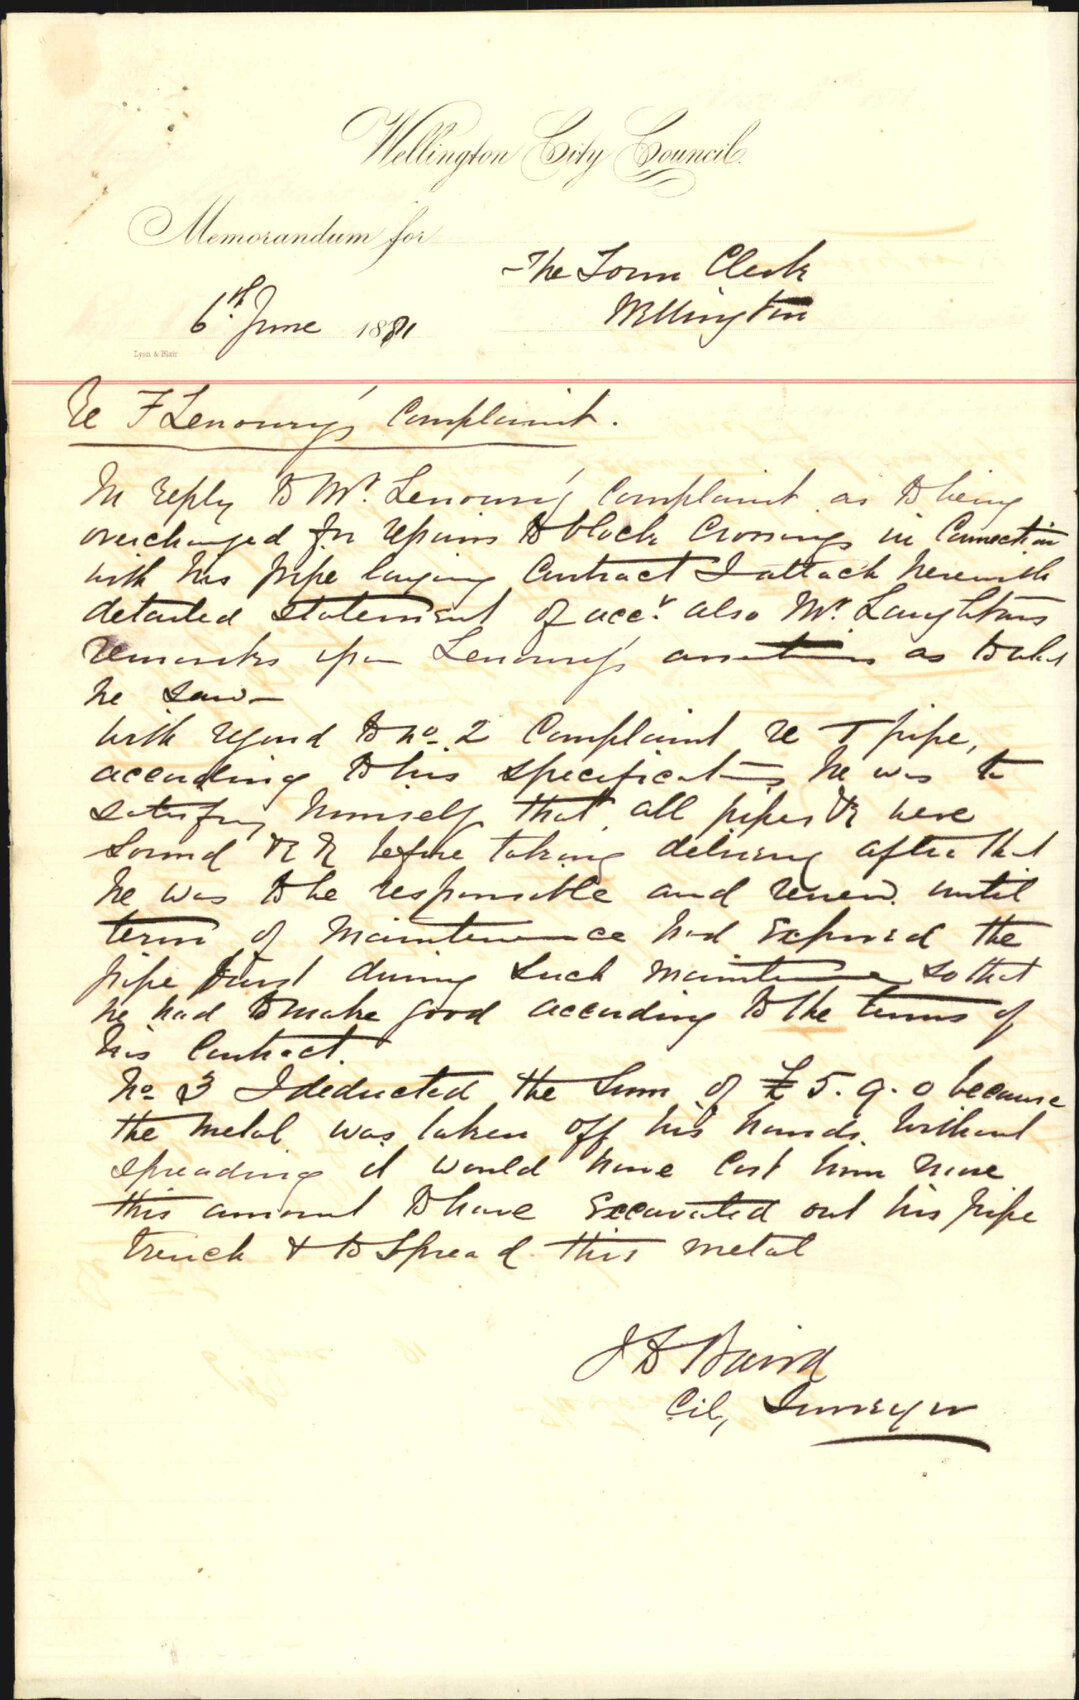 Wellington City Council.
Memorandum for
The Town Clerk
Wellington
6th June 1881
Lyon & Blair
Re F Lenoury's Complaint.
In reply to Mr. Lenoury's Complaint as to being
overcharged for repairs to block Crossings in Connection
with his pipe laying Contract I attach herewith
detailed statement of acct. also Mr. Laughtons
remarks upon Lenoury's as to what
he saw—
With regard to No. 2 Complaint re T pipe,
according to his specifications he was to
satisfy himself that all pipes &c were
sound &c &c before taking delivery after that
he was to be responsible and renew until
term of Maintenance had expired the
pipe burst during such maintenance so that
he had to make good according to the terms of
his Contract.
No 3 I deducted the Sum of £5.9.0 because
the metal was taken off his hands. Without
spreading it would have cost him more
this amount to have excavated out his pipe
trench & to spread this metal
J D Baird
City Surveyor